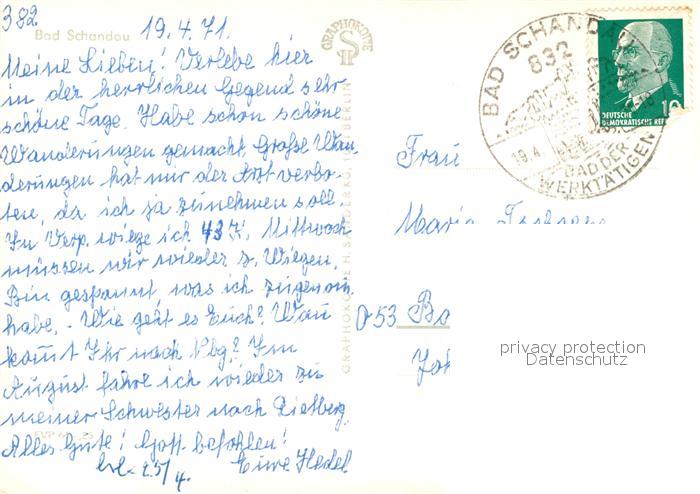 382
19.4.71.
Bad Schandau
Meine Lieben! Verlebe hier
in der herrlichen Gegend sehr
schöne Tage. Habe schon schöne
Wanderungen gemacht. Große Wan-
derungen hat mir der Arzt verbo-
ten, da ich ja zunehmen soll
In Verp. wiege ich 43 K. Mittwoch
müssen wir wieder z. Wiegen.
Bin gespannt, was ich zugenom.
habe. - Wie geht es Euch? Wann
kommt Ihr nach Nbg? Im
August fahre ich wieder zu
meiner Schwester nach Rietberg.
Alles Gute! Gott befohlen!
Eure Hedel
25/4.
EVP
GRAPHOKOPIE
GRAPHOKOPIE H. SANDER KG. BERLIN
BAD SCHANDAU
832
19.4
BAD DER
WERKTÄTIGEN
DEUTSCHE
DEMOKRATISCHE REP
10
Frau
Maria
D 53 Bo
Joh
privacy protection
Datenschutz